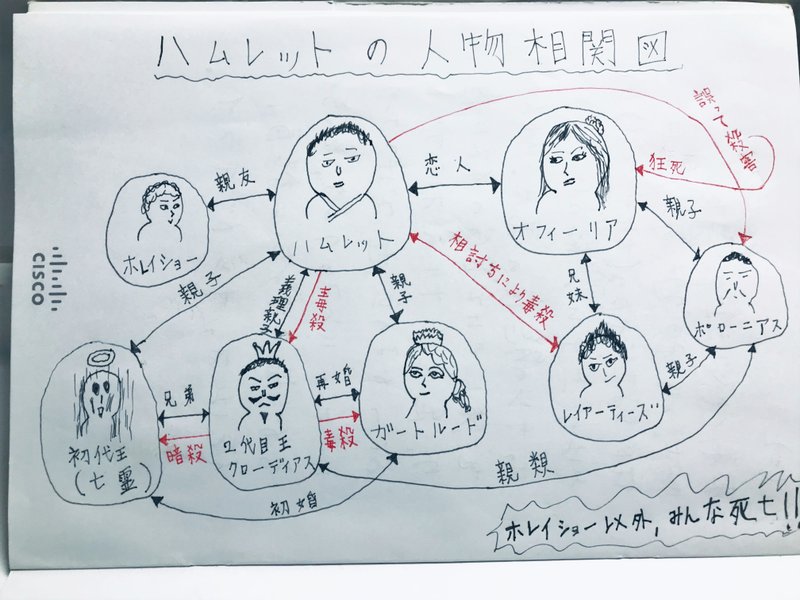 ハムレットの人物相関図
誤って殺害
親友
恋人
狂死
オフィーリア
親子
ハムレット
ホレイショー
相討ちにより毒殺
兄妹
親子
義理親子
毒殺
親子
ポローニアス
レイアーティーズ
親子
CISCO
兄弟
再婚
ガートルード
暗殺
毒殺
初代王
(亡霊)
2代目王
クローディアス
親類
初婚
ホレイショー以外,みんな死亡!!